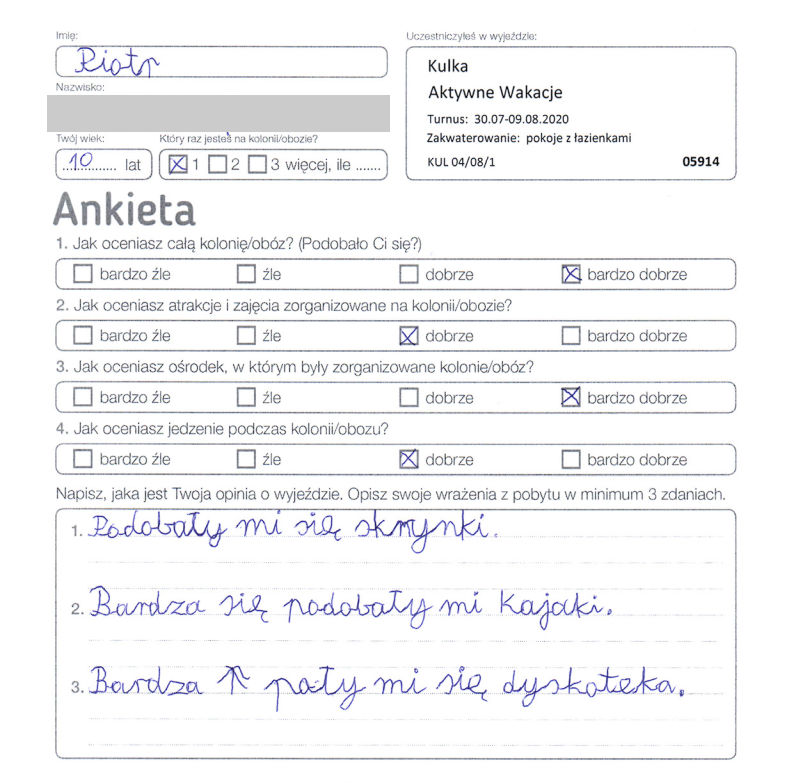 Imię:
Piotr
Nazwisko:
Twój wiek: Który raz jesteś na kolonii/obozie?
10 lat 1 2 3 więcej, ile .......
Uczestniczyłeś w wyjeździe:
Kulka
Aktywne Wakacje
Turnus: 30.07-09.08.2020
Zakwaterowanie: pokoje z łazienkami
KUL 04/08/1 05914
Ankieta
1. Jak oceniasz całą kolonię/obóz? (Podobało Ci się?)
bardzo źle źle dobrze bardzo dobrze
2. Jak oceniasz atrakcje i zajęcia zorganizowane na kolonii/obozie?
bardzo źle źle dobrze bardzo dobrze
3. Jak oceniasz ośrodek, w którym były zorganizowane kolonie/obóz?
bardzo źle źle dobrze bardzo dobrze
4. Jak oceniasz jedzenie podczas kolonii/obozu?
bardzo źle źle dobrze bardzo dobrze
Napisz, jaka jest Twoja opinia o wyjeździe. Opisz swoje wrażenia z pobytu w minimum 3 zdaniach.
1. Podobały mi się skrynki.
2. Bardza się podobały mi kajaki.
3. Bardza poły mi się dyskoteka.